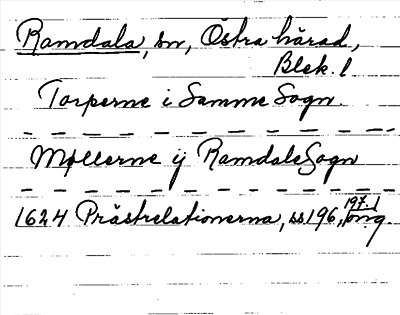 Ramdala, sn, Östra härad,
Blek. l
Torperne i Samme Sogn.
Møllerne ij RamdaleSogn
1624 Prästrelationerna, ss 196, 197. l
orig.